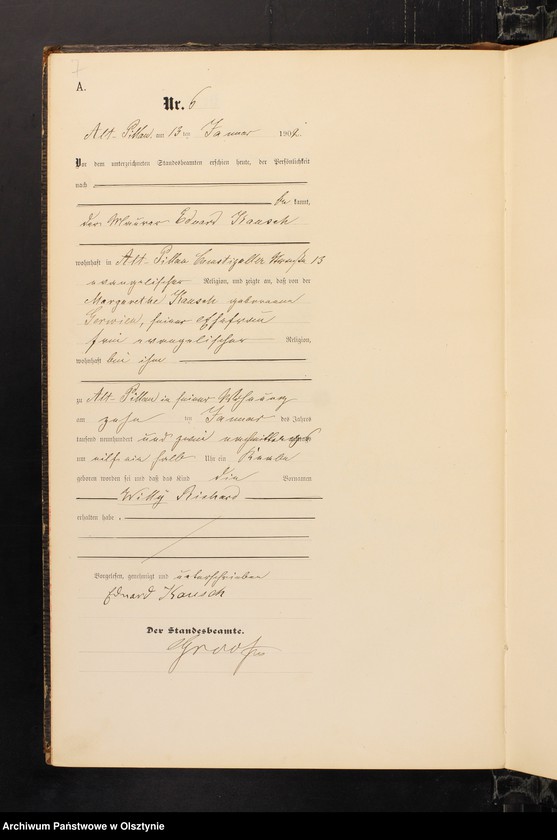 7
A.
Nr. 6
Alt-Pillau am 13 ten Januar 1902.
Vor dem unterzeichneten Standesbeamten erschien heute, der Persönlichkeit
nach
be kannt,
der Maurer Eduard Kausch
wohnhaft in Alt-Pillau 13
evangelischer Religion, und zeigte an, daß von der
Margarethe Kausch geborenen
seiner Ehefrau
evangelischer Religion,
wohnhaft bei ihm
zu Alt-Pillau in seiner Wohnung
am zehn ten Januar des Jahres
tausend neunhundert und zwei nachmittags
um elf ein halb Uhr ein Knabe
geboren worden sei und daß das Kind die Vornamen
Willy Richard
erhalten habe.
Vorgelesen, genehmigt und unterschrieben
Eduard Kausch
Der Standesbeamte.
Archiwum Państwowe w Olsztynie